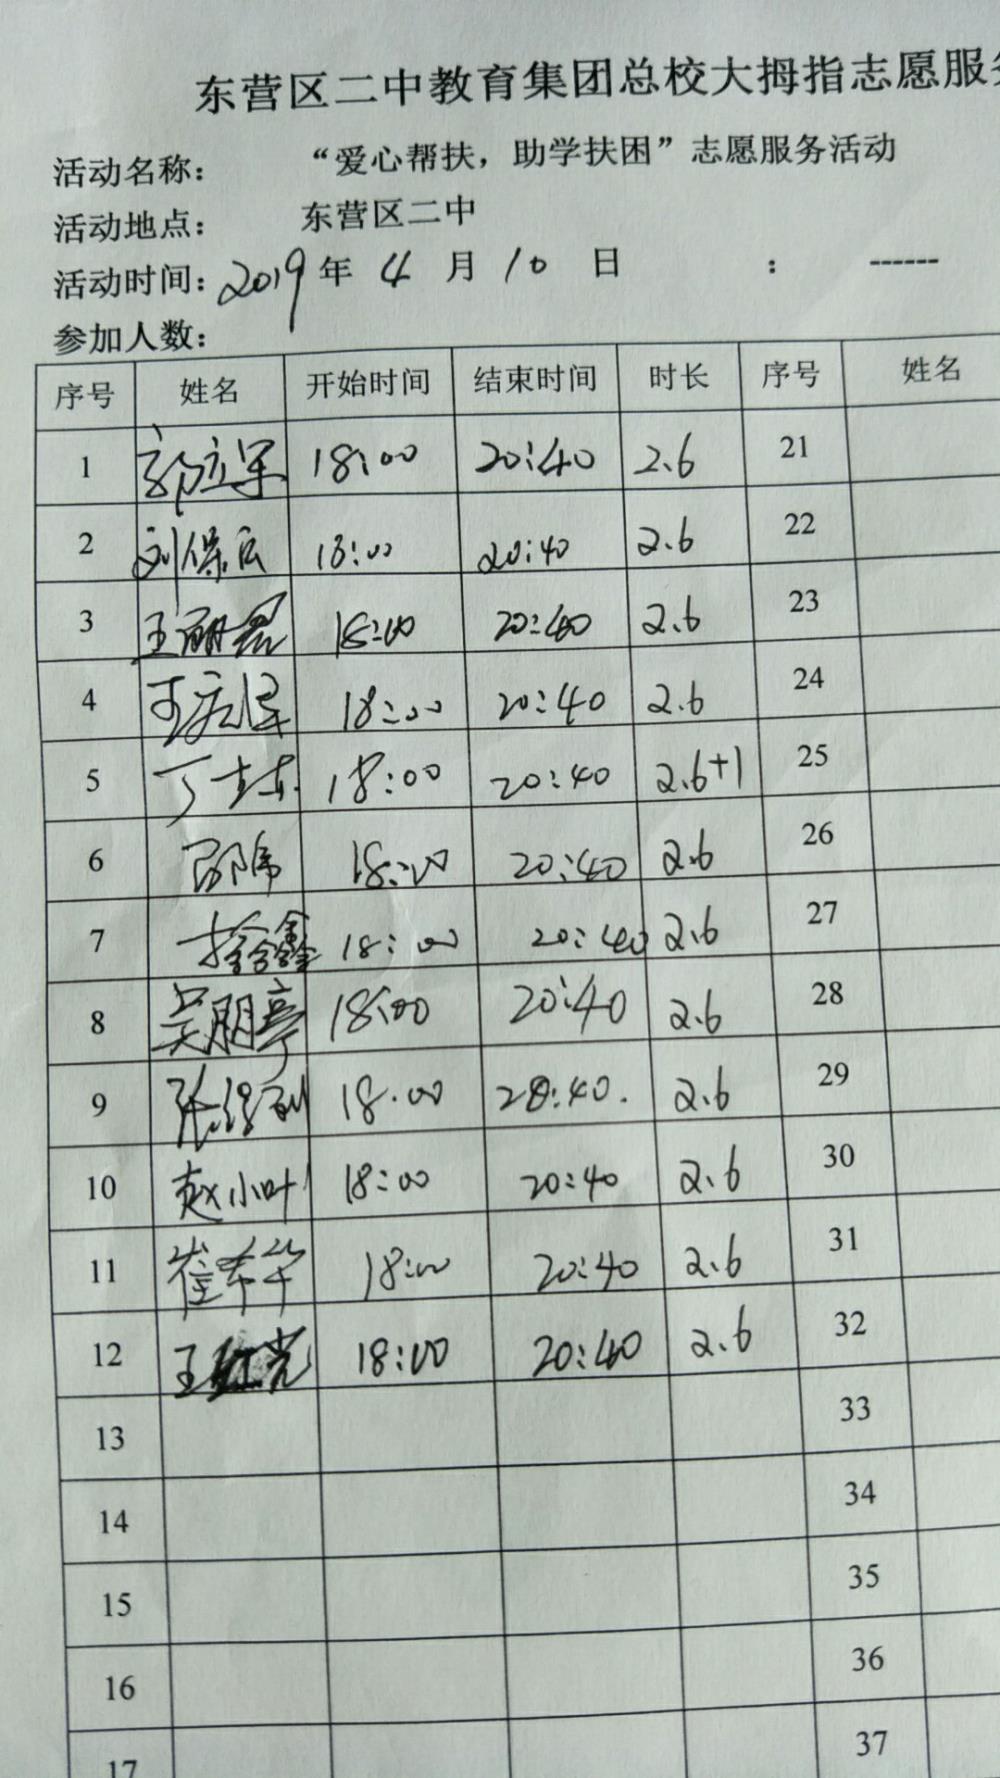 东营区二中教育集团总校大拇指志愿服
活动名称： “爱心帮扶，助学扶困”志愿服务活动
活动地点： 东营区二中
活动时间：2019年 4 月 10 日 : ------
参加人数：
序号 姓名 开始时间 结束时间 时长 序号 姓名
1 18:00 20:40 2.6 21
2 刘保 18:00 20:40 2.6 22
3 王丽 18:00 20:40 2.6 23
4 18:00 20:40 2.6 24
5 丁 18:00 20:40 2.6+1 25
6 18:00 20:40 2.6 26
7 鑫 18:00 20:40 2.6 27
8 吴朋亭 18:00 20:40 2.6 28
9 张 18.00 20:40. 2.6 29
10 赵小叶 18:00 20:40 2.6 30
11 崔 18:00 20:40 2.6 31
12 王红光 18:00 20:40 2.6 32
13 33
14 34
15 35
16 36
17 37